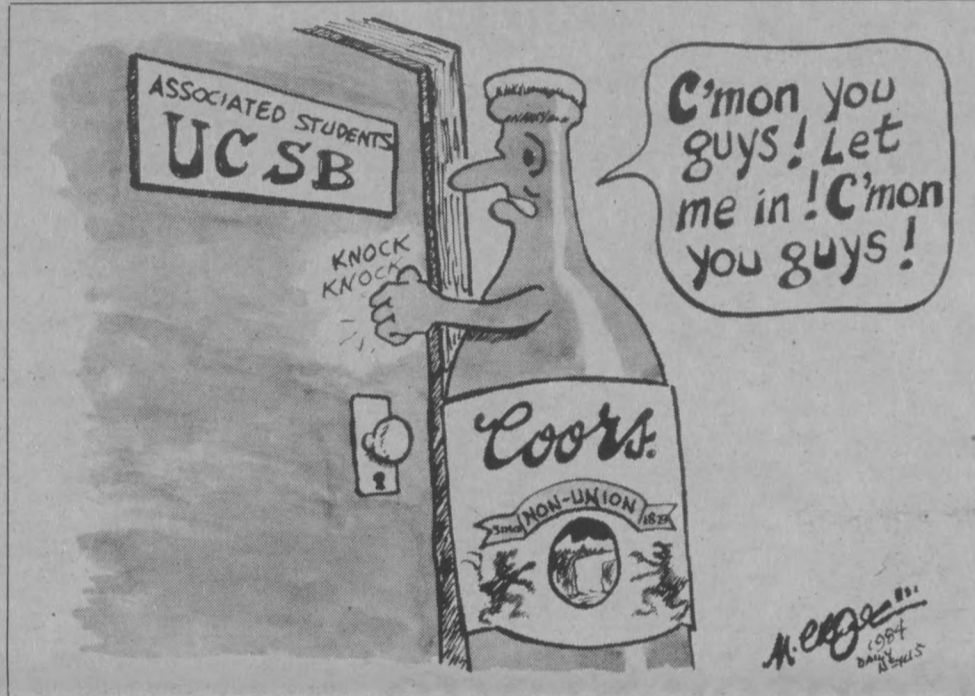 ASSOCIATED STUDENTS
UCSB
KNOCK
KNOCK
C'mon you
guys! Let
me in! C'mon
you guys!
Coors.
NON-UNION
1984
DAILY
NEXUS